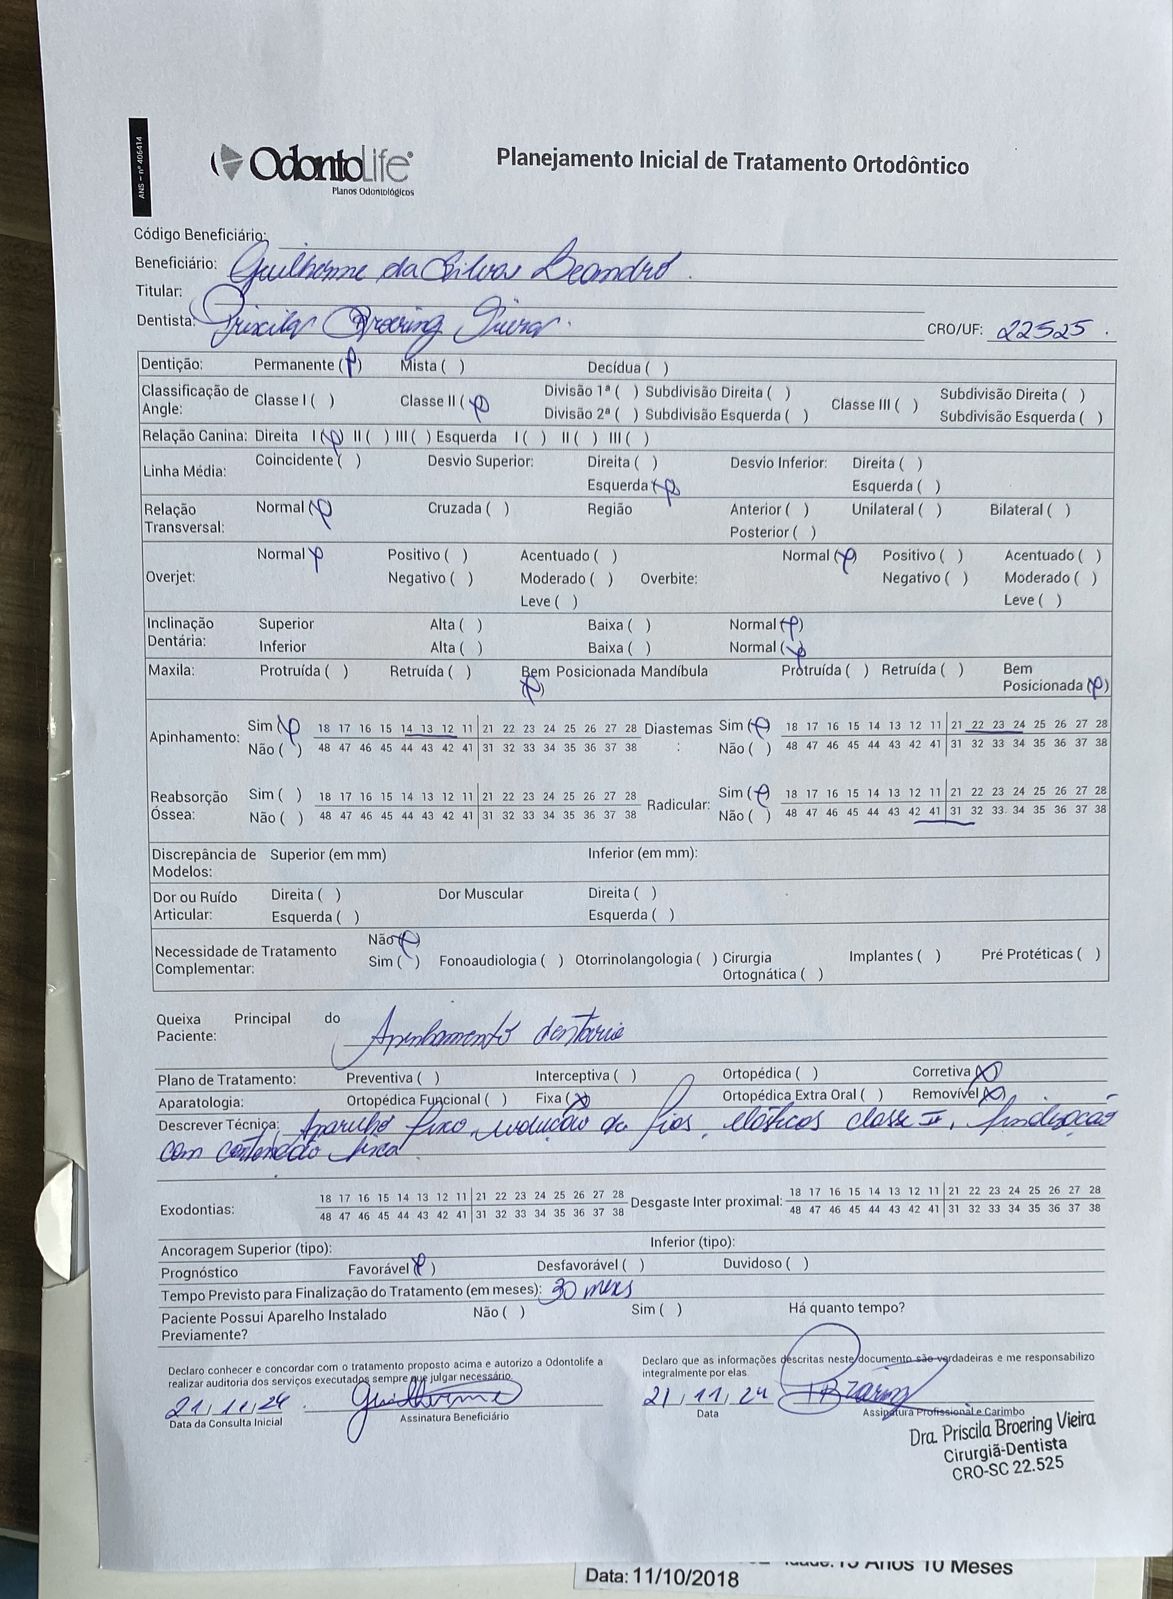 ANS - nº 406414
OdontoLife®
Planos Odontológicos
Planejamento Inicial de Tratamento Ortodôntico
Código Beneficiário:
Beneficiário: Guilherme da Silva Leandro
Titular:
Dentista: Priscila Broering Vieira CRO/UF: 22525
Dentição: Permanente (φ) Mista ( ) Decídua ( )
Classificação de Angle: Classe I ( ) Classe II (φ) Divisão 1ª ( ) Subdivisão Direita ( ) Classe III ( ) Subdivisão Direita ( )
Divisão 2ª ( ) Subdivisão Esquerda ( ) Subdivisão Esquerda ( )
Relação Canina: Direita I (φ) II ( ) III ( ) Esquerda I ( ) II ( ) III ( )
Linha Média: Coincidente ( ) Desvio Superior: Direita ( ) Desvio Inferior: Direita ( )
Esquerda (φ) Esquerda ( )
Relação Transversal: Normal (φ) Cruzada ( ) Região Anterior ( ) Unilateral ( ) Bilateral ( )
Posterior ( )
Overjet: Normal φ Positivo ( ) Acentuado ( ) Overbite: Normal (φ) Positivo ( ) Acentuado ( )
Negativo ( ) Moderado ( ) Negativo ( ) Moderado ( )
Leve ( ) Leve ( )
Inclinação Dentária: Superior Alta ( ) Baixa ( ) Normal (φ)
Inferior Alta ( ) Baixa ( ) Normal (φ)
Maxila: Protruída ( ) Retruída ( ) Bem Posicionada (φ) Mandíbula Protruída ( ) Retruída ( ) Bem Posicionada (φ)
Apinhamento: Sim (φ) 18 17 16 15 14 13 12 11 21 22 23 24 25 26 27 28 Diastemas : Sim (φ) 18 17 16 15 14 13 12 11 21 22 23 24 25 26 27 28
Não ( ) 48 47 46 45 44 43 42 41 31 32 33 34 35 36 37 38 Não ( ) 48 47 46 45 44 43 42 41 31 32 33 34 35 36 37 38
Reabsorção Óssea: Sim ( ) 18 17 16 15 14 13 12 11 21 22 23 24 25 26 27 28 Radicular: Sim (φ) 18 17 16 15 14 13 12 11 21 22 23 24 25 26 27 28
Não ( ) 48 47 46 45 44 43 42 41 31 32 33 34 35 36 37 38 Não ( ) 48 47 46 45 44 43 42 41 31 32 33 34 35 36 37 38
Discrepância de Modelos: Superior (em mm) Inferior (em mm):
Dor ou Ruído Articular: Direita ( ) Dor Muscular Direita ( )
Esquerda ( ) Esquerda ( )
Necessidade de Tratamento Complementar: Não (φ)
Sim ( ) Fonoaudiologia ( ) Otorrinolangologia ( ) Cirurgia Ortognática ( ) Implantes ( ) Pré Protéticas ( )
Queixa Principal do Paciente: Apinhamento dentario
Plano de Tratamento: Preventiva ( ) Interceptiva ( ) Ortopédica ( ) Corretiva (X)
Aparatologia: Ortopédica Funcional ( ) Fixa (X) Ortopédica Extra Oral ( ) Removível (X)
Descrever Técnica: Aparelho fixo, evolução de fios, elásticos classe II, finalização
com contenção fixa
Exodontias: 18 17 16 15 14 13 12 11 21 22 23 24 25 26 27 28 Desgaste Inter proximal: 18 17 16 15 14 13 12 11 21 22 23 24 25 26 27 28
48 47 46 45 44 43 42 41 31 32 33 34 35 36 37 38 48 47 46 45 44 43 42 41 31 32 33 34 35 36 37 38
Ancoragem Superior (tipo): Inferior (tipo):
Prognóstico Favorável (φ) Desfavorável ( ) Duvidoso ( )
Tempo Previsto para Finalização do Tratamento (em meses): 30 meses
Paciente Possui Aparelho Instalado Previamente? Não ( ) Sim ( ) Há quanto tempo?
Declaro conhecer e concordar com o tratamento proposto acima e autorizo a Odontolife a
realizar auditoria dos serviços executados sempre que julgar necessário.
21/11/24 Guilherme
Data da Consulta Inicial Assinatura Beneficiário
Declaro que as informações descritas neste documento são verdadeiras e me responsabilizo
integralmente por elas
21/11/24
Data Assinatura Profissional e Carimbo
Dra. Priscila Broering Vieira
Cirurgiã-Dentista
CRO-SC 22.525
Anos 10 Meses
Data: 11/10/2018